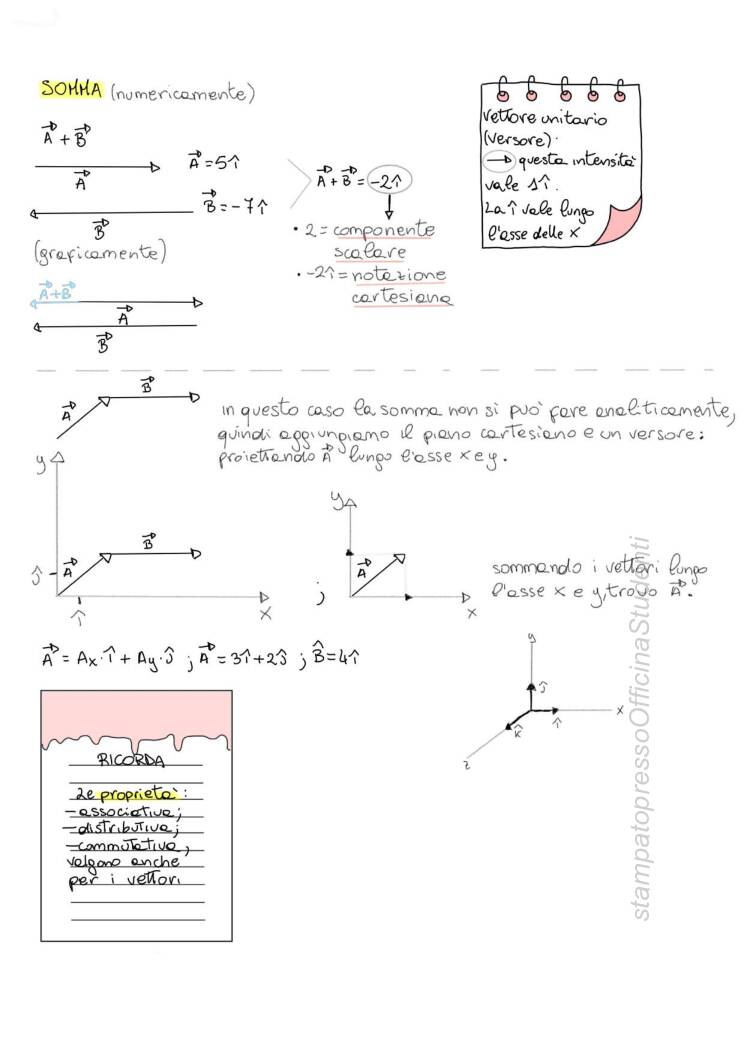 SOMMA (numericamente)
A + B
A
A = 5î
B = -7î
B
A + B = -2î
• 2 = componente
scalare
• -2î = notazione
cartesiana
vettore unitario
(versore).
→ questa intensità
vale 1î.
La î vale lungo
l'asse delle x
(graficamente)
A+B
A
B
A
B
in questo caso la somma non si può fare analiticamente,
quindi aggiungiamo il piano cartesiano e un versore:
proiettando A lungo l'asse x e y.
y
ĵ
A
B
î
x
;
y
A
x
sommando i vettori lungo
l'asse x e y, trovo A.
A = Ax·î + Ay·ĵ ; A = 3î+2ĵ ; B̂=4î
y
ĵ
x
î
k̂
z
RICORDA
Le proprietà:
-associativa;
-distributiva;
-commutativa,
valgono anche
per i vettori
stampatopressoOfficinaStudenti